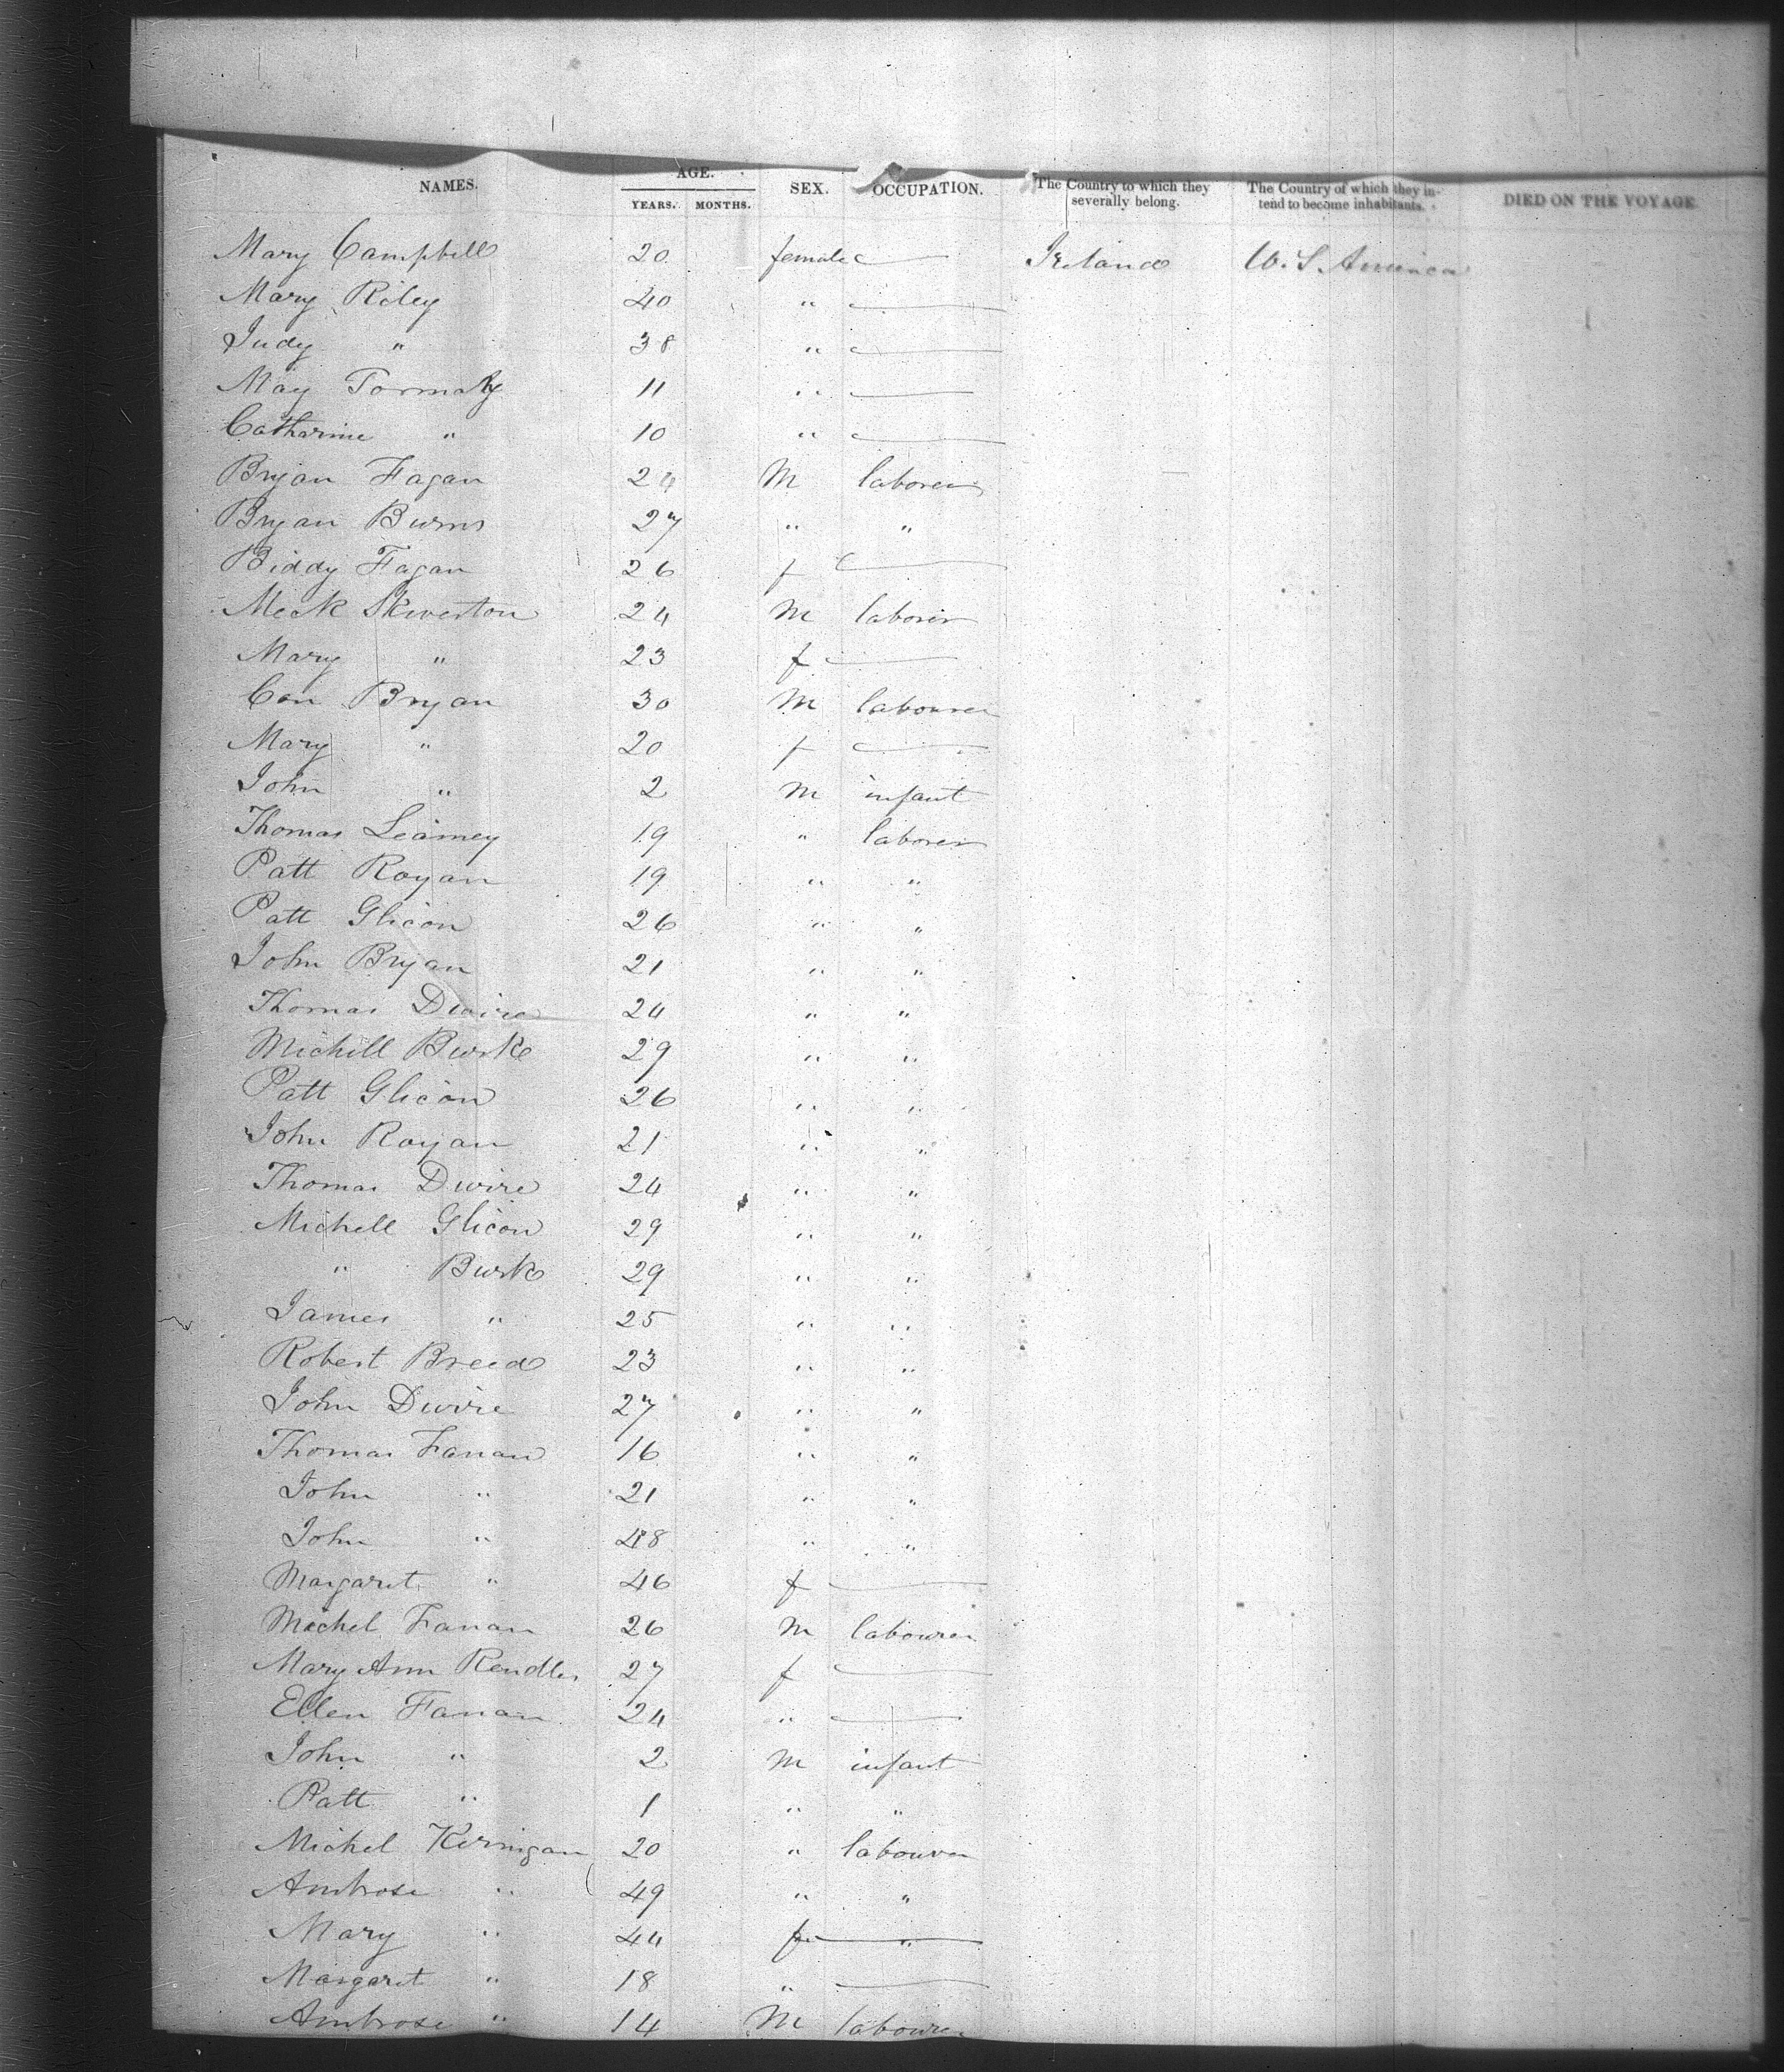 NAMES. AGE. SEX. OCCUPATION. The Country to which they severally belong. The Country of which they intend to become inhabitants. DIED ON THE VOYAGE
YEARS. MONTHS.
Mary Campbell 20 female Ireland U.S America
Mary Riley 40 "
Judy " 38 "
May 11 "
Catharine " 10 "
Bryan Fagan 24 M laborer
Bryan Burns 27 " "
Biddy Fagan 26 f
Meck Skiverton 24 M laborer
Mary " 23 f
Con Bryan 30 M labourer
Mary " 20 f
John " 2 M infant
Thomas Leamey 19 " laborer
Patt Royan 19 " "
Patt Glicon 26 " "
John Bryan 21 " "
Thomas Dwire 24 " "
Michell Burke 29 " "
Patt Glicon 26 " "
John Royan 21 " "
Thomas Dwire 24 " "
Michell Glicon 29 " "
" Burke 29 " "
James " 25 " "
Robert Breed 23 " "
John Dwire 27 " "
Thomas Fanan 16 " "
John " 21 " "
John " 48 " "
Margaret " 46 f
Michel Fanan 26 M labourer
Mary Ann 27 f
Ellen Fanan 24 "
John " 2 M infant
Patt " 1 " "
Michel Kerrigan 20 " labourer
Ambrose " 49 " "
Mary " 44 f "
Margaret " 18 "
Ambrose " 14 M labourer